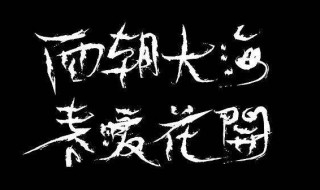 面朝大海
春暖花開